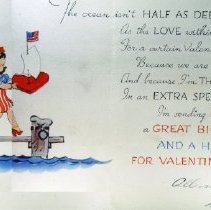 The ocean isn't HALF AS DE
As the LOVE within
For a certain Valen
Because we are
And because I'm TH
In an EXTRA SPE
I'm sending
a GREAT BI
AND A H
FOR VALENTIN